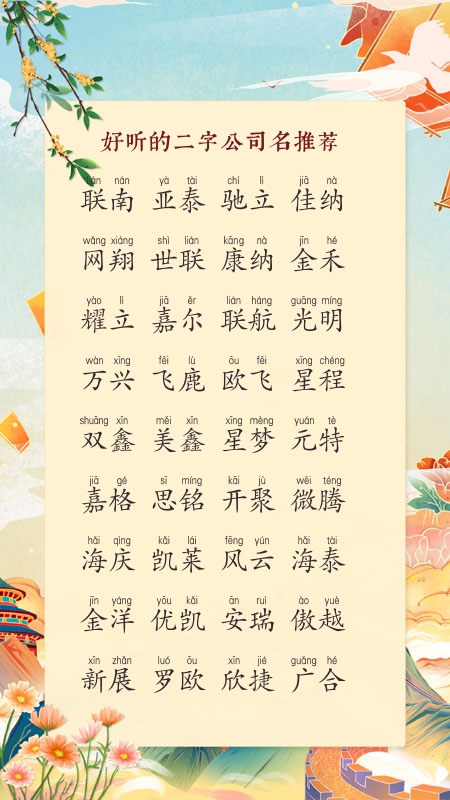 好听的二字公司名推荐
lián nán yà tài chí lì jiā nà
联南 亚泰 驰立 佳纳
wǎng xiáng shì lián kāng nà jīn hé
网翔 世联 康纳 金禾
yào lì jiā ěr lián háng guāng míng
耀立 嘉尔 联航 光明
wàn xīng fēi lù ōu fēi xīng chéng
万兴 飞鹿 欧飞 星程
shuāng xīn měi xīn xīng mèng yuán tè
双鑫 美鑫 星梦 元特
jiā gé sī míng kāi jù wēi téng
嘉格 思铭 开聚 微腾
hǎi qìng kǎi lái fēng yún hǎi tài
海庆 凯莱 风云 海泰
jīn yáng yōu kǎi ān ruì ào yuè
金洋 优凯 安瑞 傲越
xīn zhǎn luó ōu xīn jié guǎng hé
新展 罗欧 欣捷 广合